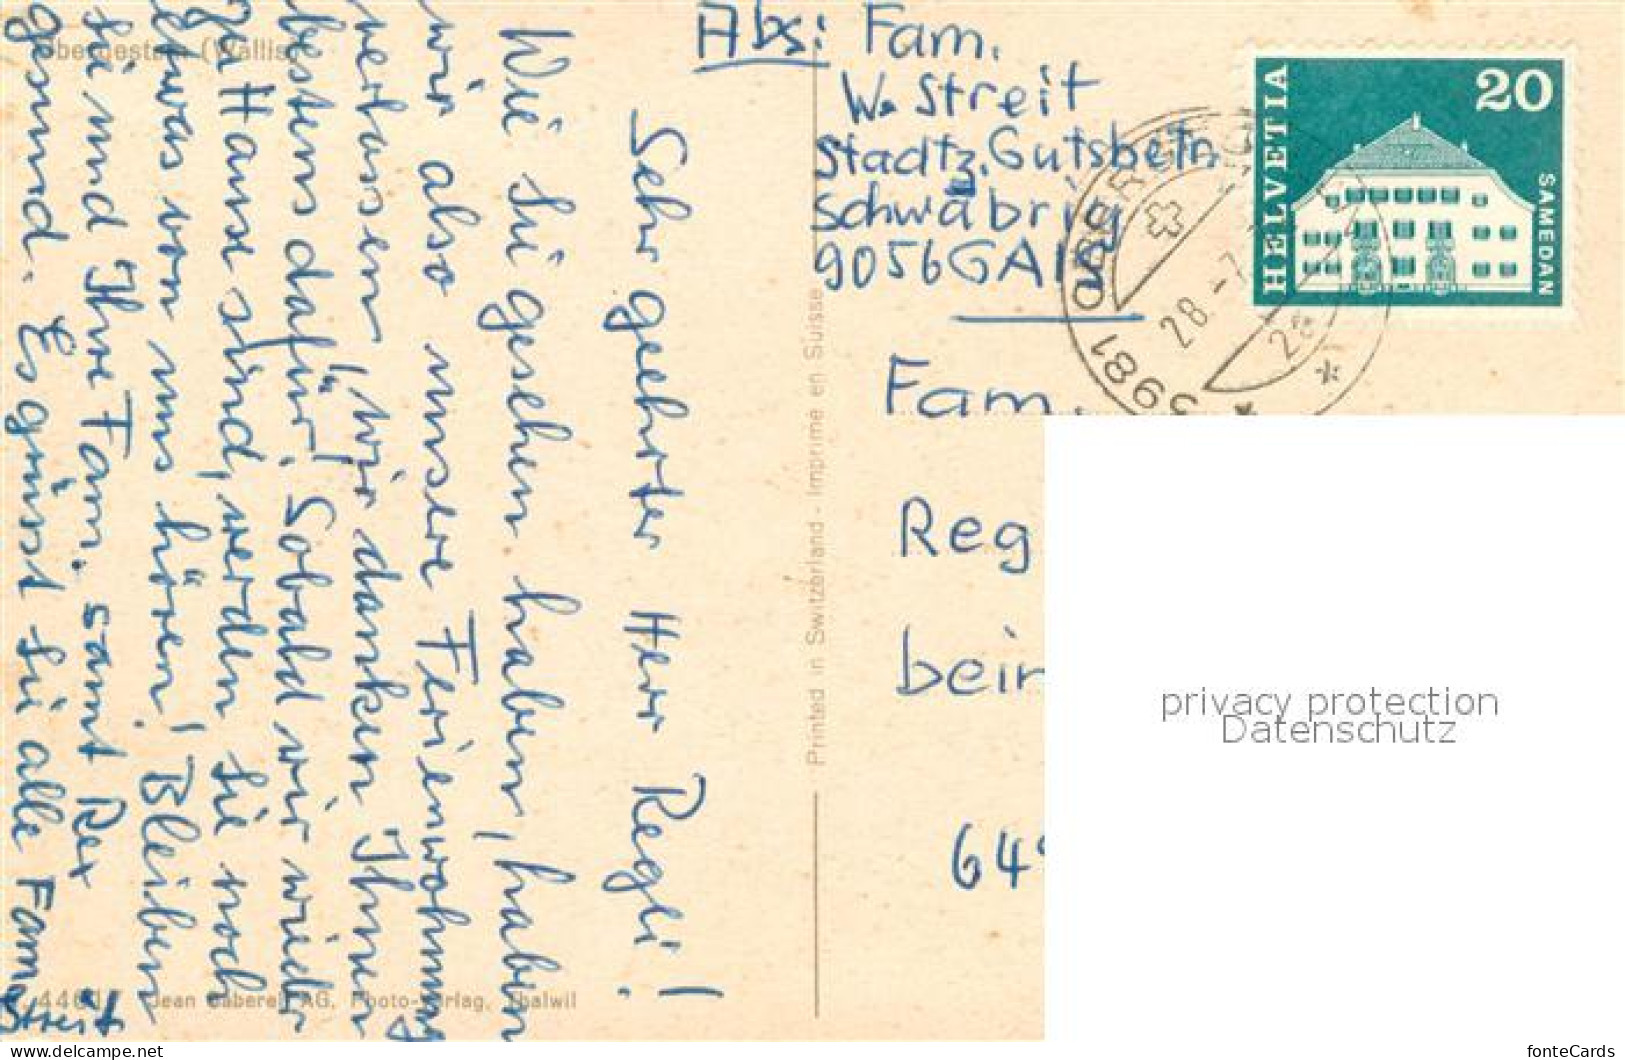 Obergesteln (Wallis)
Sehr geehrter Herr Regli!
Wie Sie gesehen haben, haben
wir also unsere Ferienwohnung
verlassen. Wir danken Ihnen
bestens dafür! Sobald wir wieder
zu Hause sind, werden Sie noch
etwas von uns hören! Bleiben
Sie und Ihre Fam. samt Rex
gesund. Es grüsst Sie alle Fam.
Streit
Jean Gaberell AG. Photo-Verlag, Thalwil
Printed in Switzerland - Imprimé en Suisse
Abs: Fam.
W. Streit
Stadtz. Gutsbetr.
Schwäbrig
9056 GAIS
HELVETIA
20
SAMEDAN
3981 OBERGESTELN
28.-7.
Fam.
Reg
bei
64
privacy protection
Datenschutz
http://www.ak-ansichtskarten.de
fonteCards